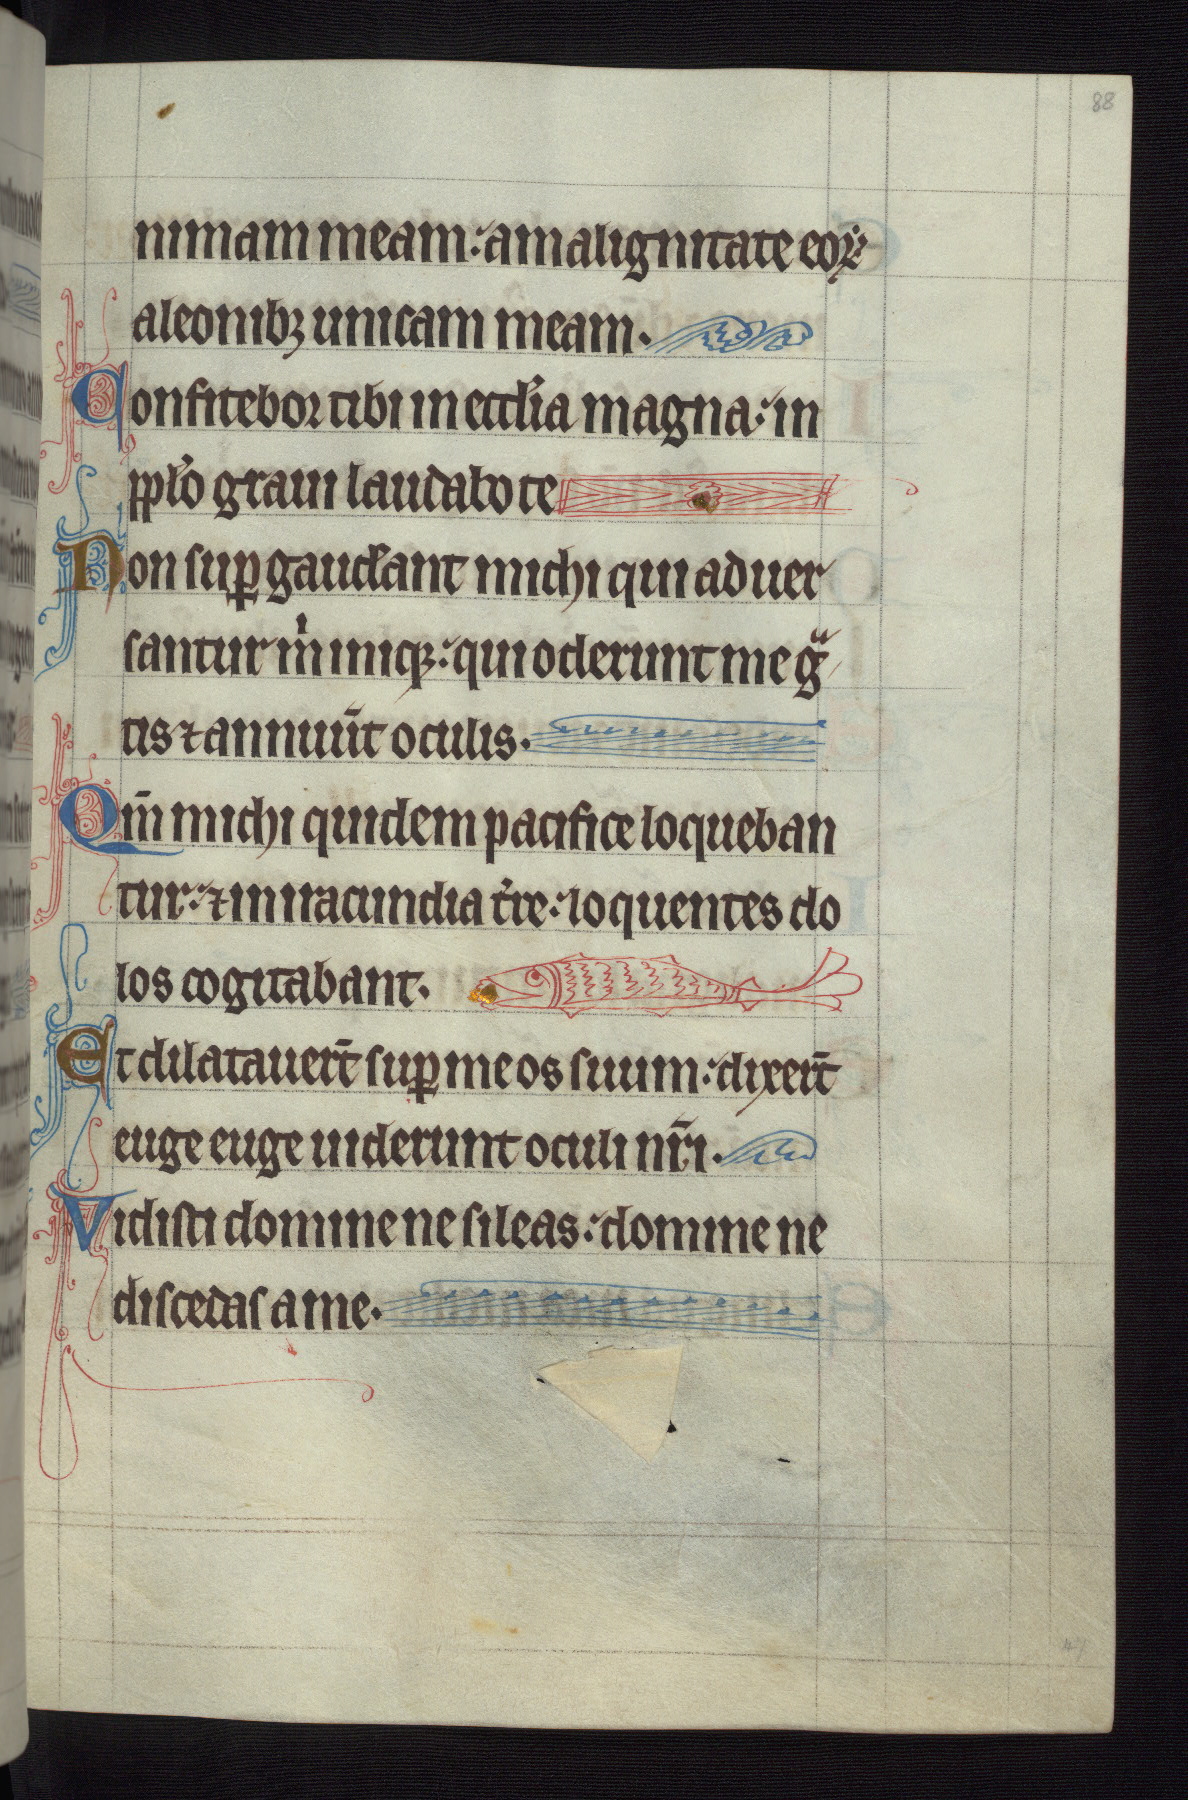 88
nimam meam: a malignitate eoꝝ
a leonibꝫ unicam meam.
Confitebor tibi in eccl̄ia magna: in
ppl̄o graui laudabo te
Non suꝑ gaudeant michi qui aduer
santur m̄ iniq̨: qui oderunt me gͣ
tis ⁊ annuūt oculis.
Qm̄ michi quidem pacifice loqueban
tur: ⁊ in iracundia t̄re: loquentes do
los cogitabant.
Et dilatauer̄t suꝑ me os suum: dixer̄t
euge euge uiderunt oculi nr̄i.
Vidisti domine ne sileas: domine ne
discedas a me.